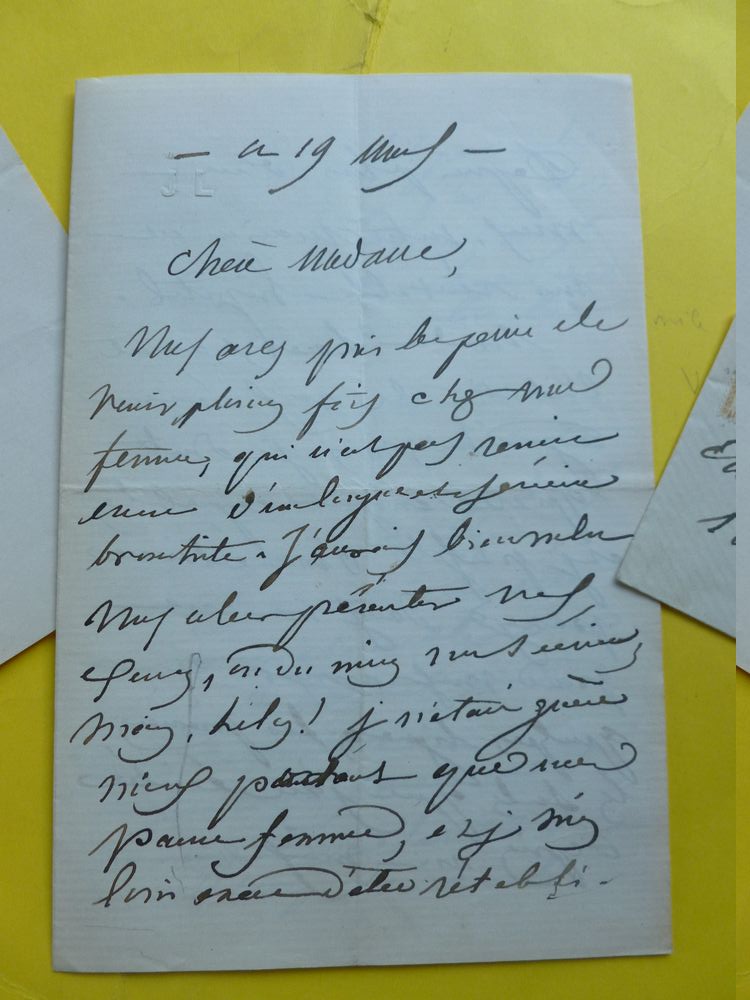 - ce 19 Mars -
JL
Chère Madame,
Vous avez pris la peine de
venir plusieurs fois chez ma
femme, qui n'est pas remise
encore d'une longue et sérieuse
bronchite. J'aurais bien voulu
vous aller présenter mes
, ou du moins vous écrire,
mais, hélas! je n'étais guère
mieux portant que ma
pauvre femme, et je suis
loin encore d'être rétabli.